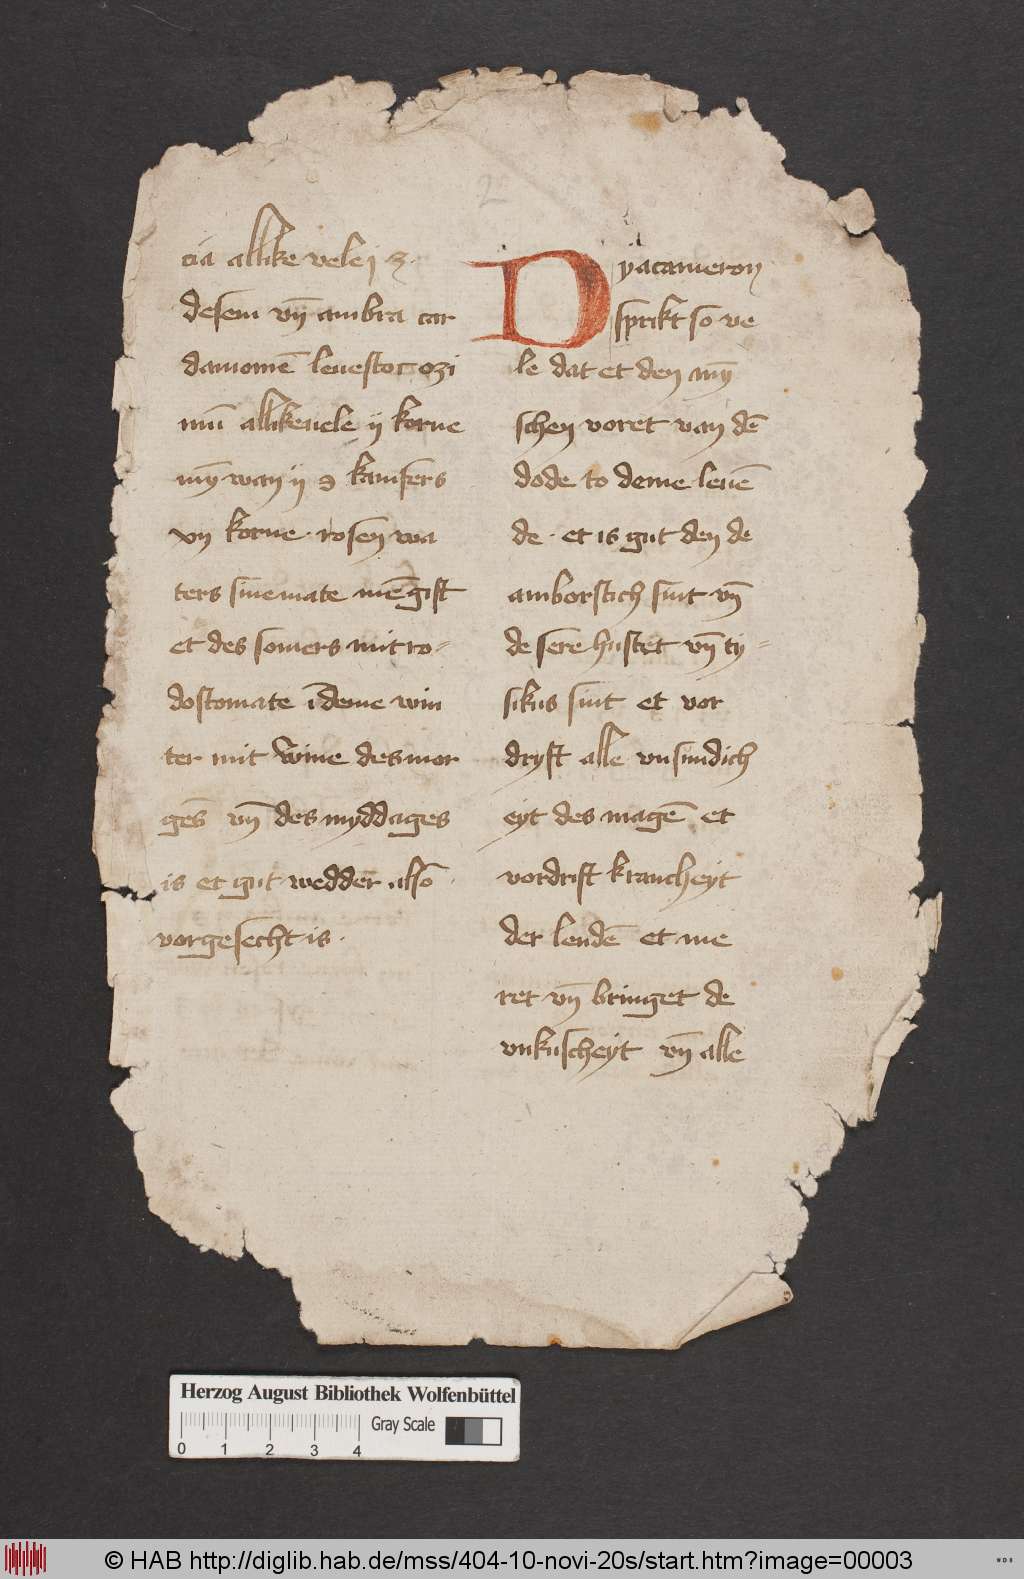 2
cia allike velej ʒ.
desem vn̄ ambra car
damomē leuestoc ozi
mū allikeuele ij korne
mȳ wan ij ɔ kamfers
vij korne · rosen wa
ters sinemate mēgist
et des somers mit ro-
dostomate ī deme win
ter mit wine des mor
gēs vn̄ des myddages
is et gut wedder also
vorgesecht is ·
Dyacameron
sprikt so ve
le dat et den mȳ
schen voret van dē
dode to deme leuē
de · et is gut den de
amborstich sint vn̄
de sere hustet vn̄ ty-
sikus sint et vor
dryft alle vnsundich
eyt des magē et
vordrift krancheyt
der lendē et me
ret vn̄ bringet de
vnkuscheyt vn̄ alle
Herzog August Bibliothek Wolfenbüttel
0 1 2 3 4 Gray Scale
© HAB http://diglib.hab.de/mss/404-10-novi-20s/start.htm?image=00003